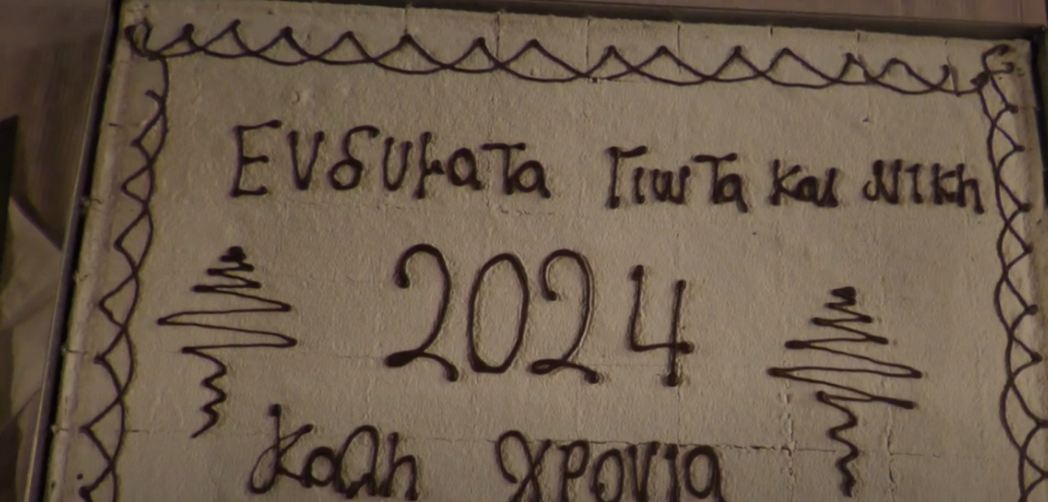 Ενδυματα Γιωτα και Νικη
2024
Καλη χρονια